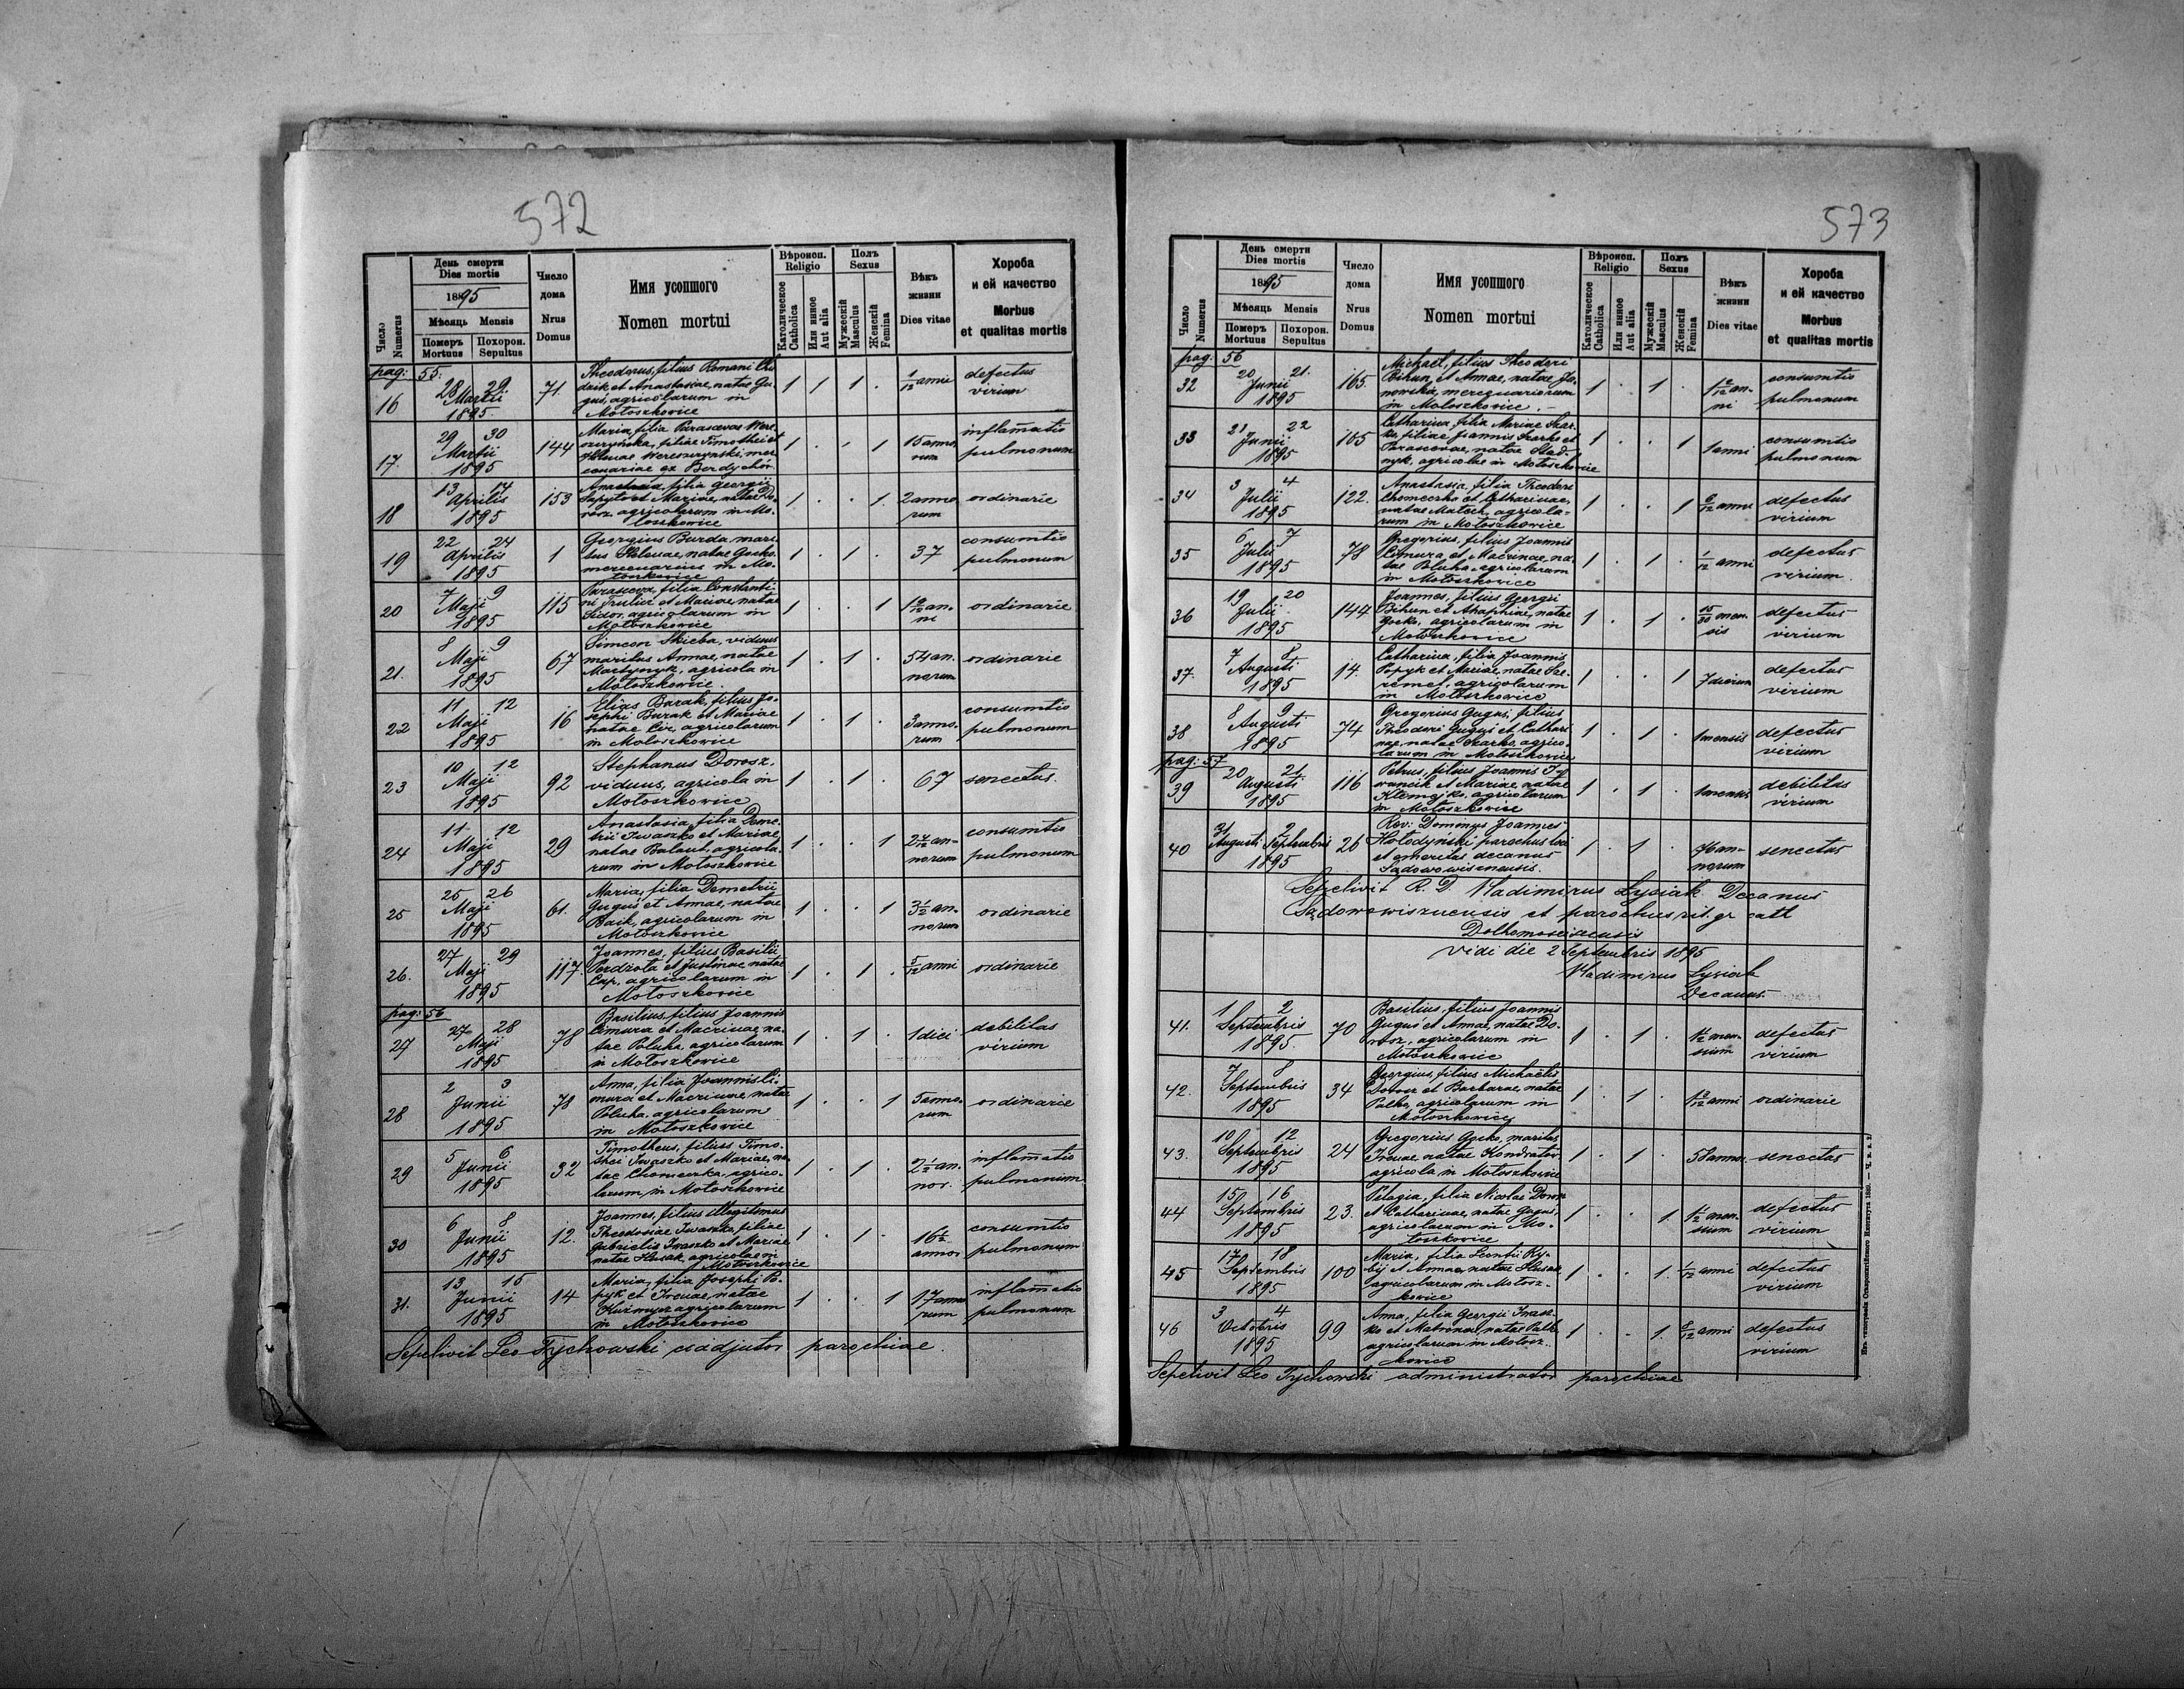 572
Число Numerus
День смерти
Dies mortis
1895
Мѣсяць Mensis
Померъ Mortuus
Похорон. Sepultus
Число дома
Nrus Domus
Имя усопшого
Nomen mortui
Вѣроисп.
Religio
Католическое Catholica
Или инное Aut alia
Полъ
Sexus
Мужескій Masculus
Женскій Femina
Вѣкъ жизни
Dies vitae
Хороба
и ей качество
Morbus
et qualitas mortis
pag: 55.
16 28 29 Martii 1895 71.
Theodorus, filius Romani
et Anastasiae, natae Gu-
guś, agricolarum in
Mołoszkowice
1 1 1 . 1/12 anni defectus virium
17. 29 30 Martii 1895 144
Maria, filia Parascevae Were-
szczyńska, filiae Timothei et
Helenae Wereszczynski, mer-
cenariae ex Berdychów
1 . . 1 15 annorum inflam̄atio pulmonum
18 13 14 Aprilis 1895 153
Anastasia, filia Georgii
Sapyta et Mariae, natae Do-
rosz, agricolarum in Mo-
łoszkowice
1 . . 1 2 annorum ordinarie
19 22 24 Aprilis 1895 1
Georgius Burda, mari-
tus Helenae, natae Gocko.
mercenarius in Mo-
łoszkowice
1 . 1 . 37 consumtio pulmonum
20 7 9 Maji 1895 115
Parasceva, filia Constanti-
ni et Mariae, natae
Sidor, agricolarum in
Mołoszkowice
1 . . 1 anni ordinarie
21. 8 9 Maji 1895 67
Simeon Skiba, viduus
maritus Annae, natae
Martynyk, agricola in
Mołoszkowice.
1 . 1 . 54 annorum ordinarie
22 11 12 Maji 1895 16
Elias Burak, filius Jo-
sephi Burak et Mariae
natae Cir, agricolarum
in Mołoszkowice
1 . 1 . 3 annorum consumtio pulmonum
23 10 12 Maji 1895 92
Stephanus Dorosz,
viduus, agricola in
Mołoszkowice
1 . 1 . 67 senectus.
24 11 12 Maji 1895 29
Anastasia, filia Deme-
trii Iwaszko et Mariae,
natae Balaut, agricola-
rum in Mołoszkowice
1 . . 1 annorum consumtio pulmonum
25 25 26 Maji 1895 61.
Maria, filia Demetrii
Guguś et Annae, natae
Baik, agricolarum in
Mołoszkowice
1 . . 1 3 1/2 annorum ordinarie
26. 27 29 Maji 1895 117.
Joannes, filius Basilii
et Justinae natae
Cap, agricolarum in
Mołoszkowice
1 . 1 . 5/12 anni ordinarie
pag: 56
27 27 28 Maji 1895 78
Basilius, filius Joannis
Cimura et Macrinae, na-
tae Pluha, agricolarum
in Mołoszkowice
1 . 1 . 1 diei debilitas virium
28 2 3 Junii 1895 78
Anna, filia Joannis Ci-
mura et Macrinae, natae
Pluha, agricolarum
in Mołoszkowice
1 . . 1 5 annorum ordinarie
29 5 6 Junii 1895 32
Timotheus, filius Timo-
thei Iwaszko et Mariae, na-
tae Chomeczka, agrico-
larum in Mołoszkowice
1 . 1 . 2 1/2 annor. inflam̄atio pulmonum
30 6 8 Junii 1895 12.
Joannes, filius illegitimus
Theodosiae Iwaszko, filiae
Gabrielis Iwaszko et Mariae
natae Husak, agricolae in
Mołoszkowice
1 . 1 . annor. consumtio pulmonum
31. 13 15 Junii 1895 14
Maria, filia Josephi Po-
pyk et Irenae, natae
Kuźmycz agricolarum
in Mołoszkowice
1 . . 1 17 annorum inflam̄atio pulmonum
Sepelivit Leo Tychowski coadjutor parochiae.
573
Число Numerus
День смерти
Dies mortis
1895
Мѣсяць Mensis
Померъ Mortuus
Похорон. Sepultus
Число дома
Nrus Domus
Имя усопшого
Nomen mortui
Вѣроисп.
Religio
Католическое Catholica
Или инное Aut alia
Полъ
Sexus
Мужескій Masculus
Женскій Femina
Вѣкъ жизни
Dies vitae
Хороба
и ей качество
Morbus
et qualitas mortis
pag: 56
32 20 21. Junii 1895 165.
Michaël, filius Theodori
Bihun, et Annae, natae Ja-
nowska, mercenariorum
in Mołoszkowice. –
1 . 1 . anni consumtio pulmonum
33 21 22 Junii 1895 165
Catharina, filia Mariae Szar-
ko, filiae Joannis Szarko et
Parascevae, natae Stad-
nyk, agricolae in Mołoszkowice
1 . . 1 1 anni consumtio pulmonum
34 3 4 Julii 1895 122.
Anastasia, filia Theodori
Chomeczka et Catharinae,
natae Małach, agricola-
rum in Mołoszkowice
1 . . 1 anni defectus virium
35 6 7 Julii 1895 78
Gregorius, filius Joannis
Cimura, et Macrinae, na-
tae Pluha, agricolarum
in Mołoszkowice
1 . 1 . 1/12 anni defectus virium.
36 19 20 Julii 1895 144
Joannes, filius Georgii
Bihun et Ahaphiae, natae
Gocko, agricolarum in
Mołoszkowice
1 . 1 . 15/30 mensis defectus virium
37. 7 8 Augusti 1895 14.
Catharina, filia Joannis
Popyk et Mariae, natae Sze-
remet, agricolarum
in Mołoszkowice
1 . . 1 7 dierum defectus virium
38 8 9 Augusti 1895 74
Gregorius Guguś, filius
Theodori Guguś et Cathari-
nae, natae Szarko, agrico-
larum in Mołoszkowice
1 . 1 . 1 mensis defectus virium
pag: 57
39 20 21 Augusti 1895 116
Petrus, filius Joannis Ty-
et Mariae, natae
agricolarum
in Mołoszkowice
1 . 1 . 1 mensis debilitas virium
40 31 Augusti 2 Septembris 1895 26
Rev: Dominus Joannes
Hołodyński parochus loci
et emeritus decanus
Sądowowisznensis.
1 . 1 . 76 annorum senectus
Sepelivit R. D. Vladimirus Łysiak Decanus
Sądowowisznensis et parochus rit. gr. cath
Dołhomościacensis
Vidi die 2 Septembris 1895
Vladimirus Łysiak
Decanus.
41. 1 2 Septembris 1895. 70
Basilius, filius Joannis
Guguś et Annae, natae Do-
rosz, agricolarum in
Mołoszkowice
1 . 1 . 1 1/2 mensium defectus virium
42. 7 8 Septembris 1895 34
Georgius, filius Michaëlis
Dorosz et Barbarae, natae
Palko, agricolarum in
Mołoszkowice
1 . 1 . anni ordinarie
43. 10 12 Septembris 1895 24
Gregorius Gocko, maritus
Irenae natae Kondrator
agricola in Mołoszkowice
1 . 1 . 58 annor. senectus
44 15 16 Septembris 1895 23.
Pelagia, filia Nicolai
et Catharinae, natae Guguś,
agricolarum in Mo-
łoszkowice
1 . . 1 1 1/2 mensium defectus virium
45 17 18 Septembris 1895 100
Maria, filia Leontii Ry-
bij et Annae, natae Husak
agricolarum in Mołosz-
kowice
1 . . 1. 1/12 anni defectus virium
46 3 4 Octobris 1895 99
Anna, filia Georgii Iwasz-
ko et Matronae, natae
agricolarum in Mołosz-
kowice
1 . . 1. anni defectus virium
Sepelivit Leo Tychowski administrator parochiae
Изъ типографіи Ставропигійского Института 1889. — Ч. в. в. 2/